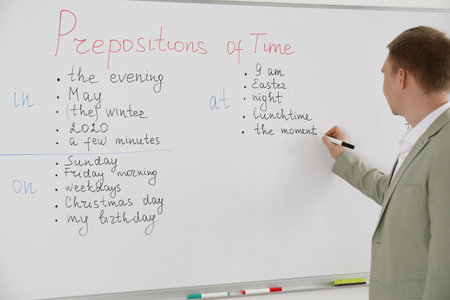 Prepositions of Time
in
• the evening
• May
• (the) winter
• 2020
• a few minutes
on
• Sunday
• Friday morning
• weekdays
• Christmas day
• my birthday
at
• 9 am
• Easter
• night
• lunchtime
• the moment